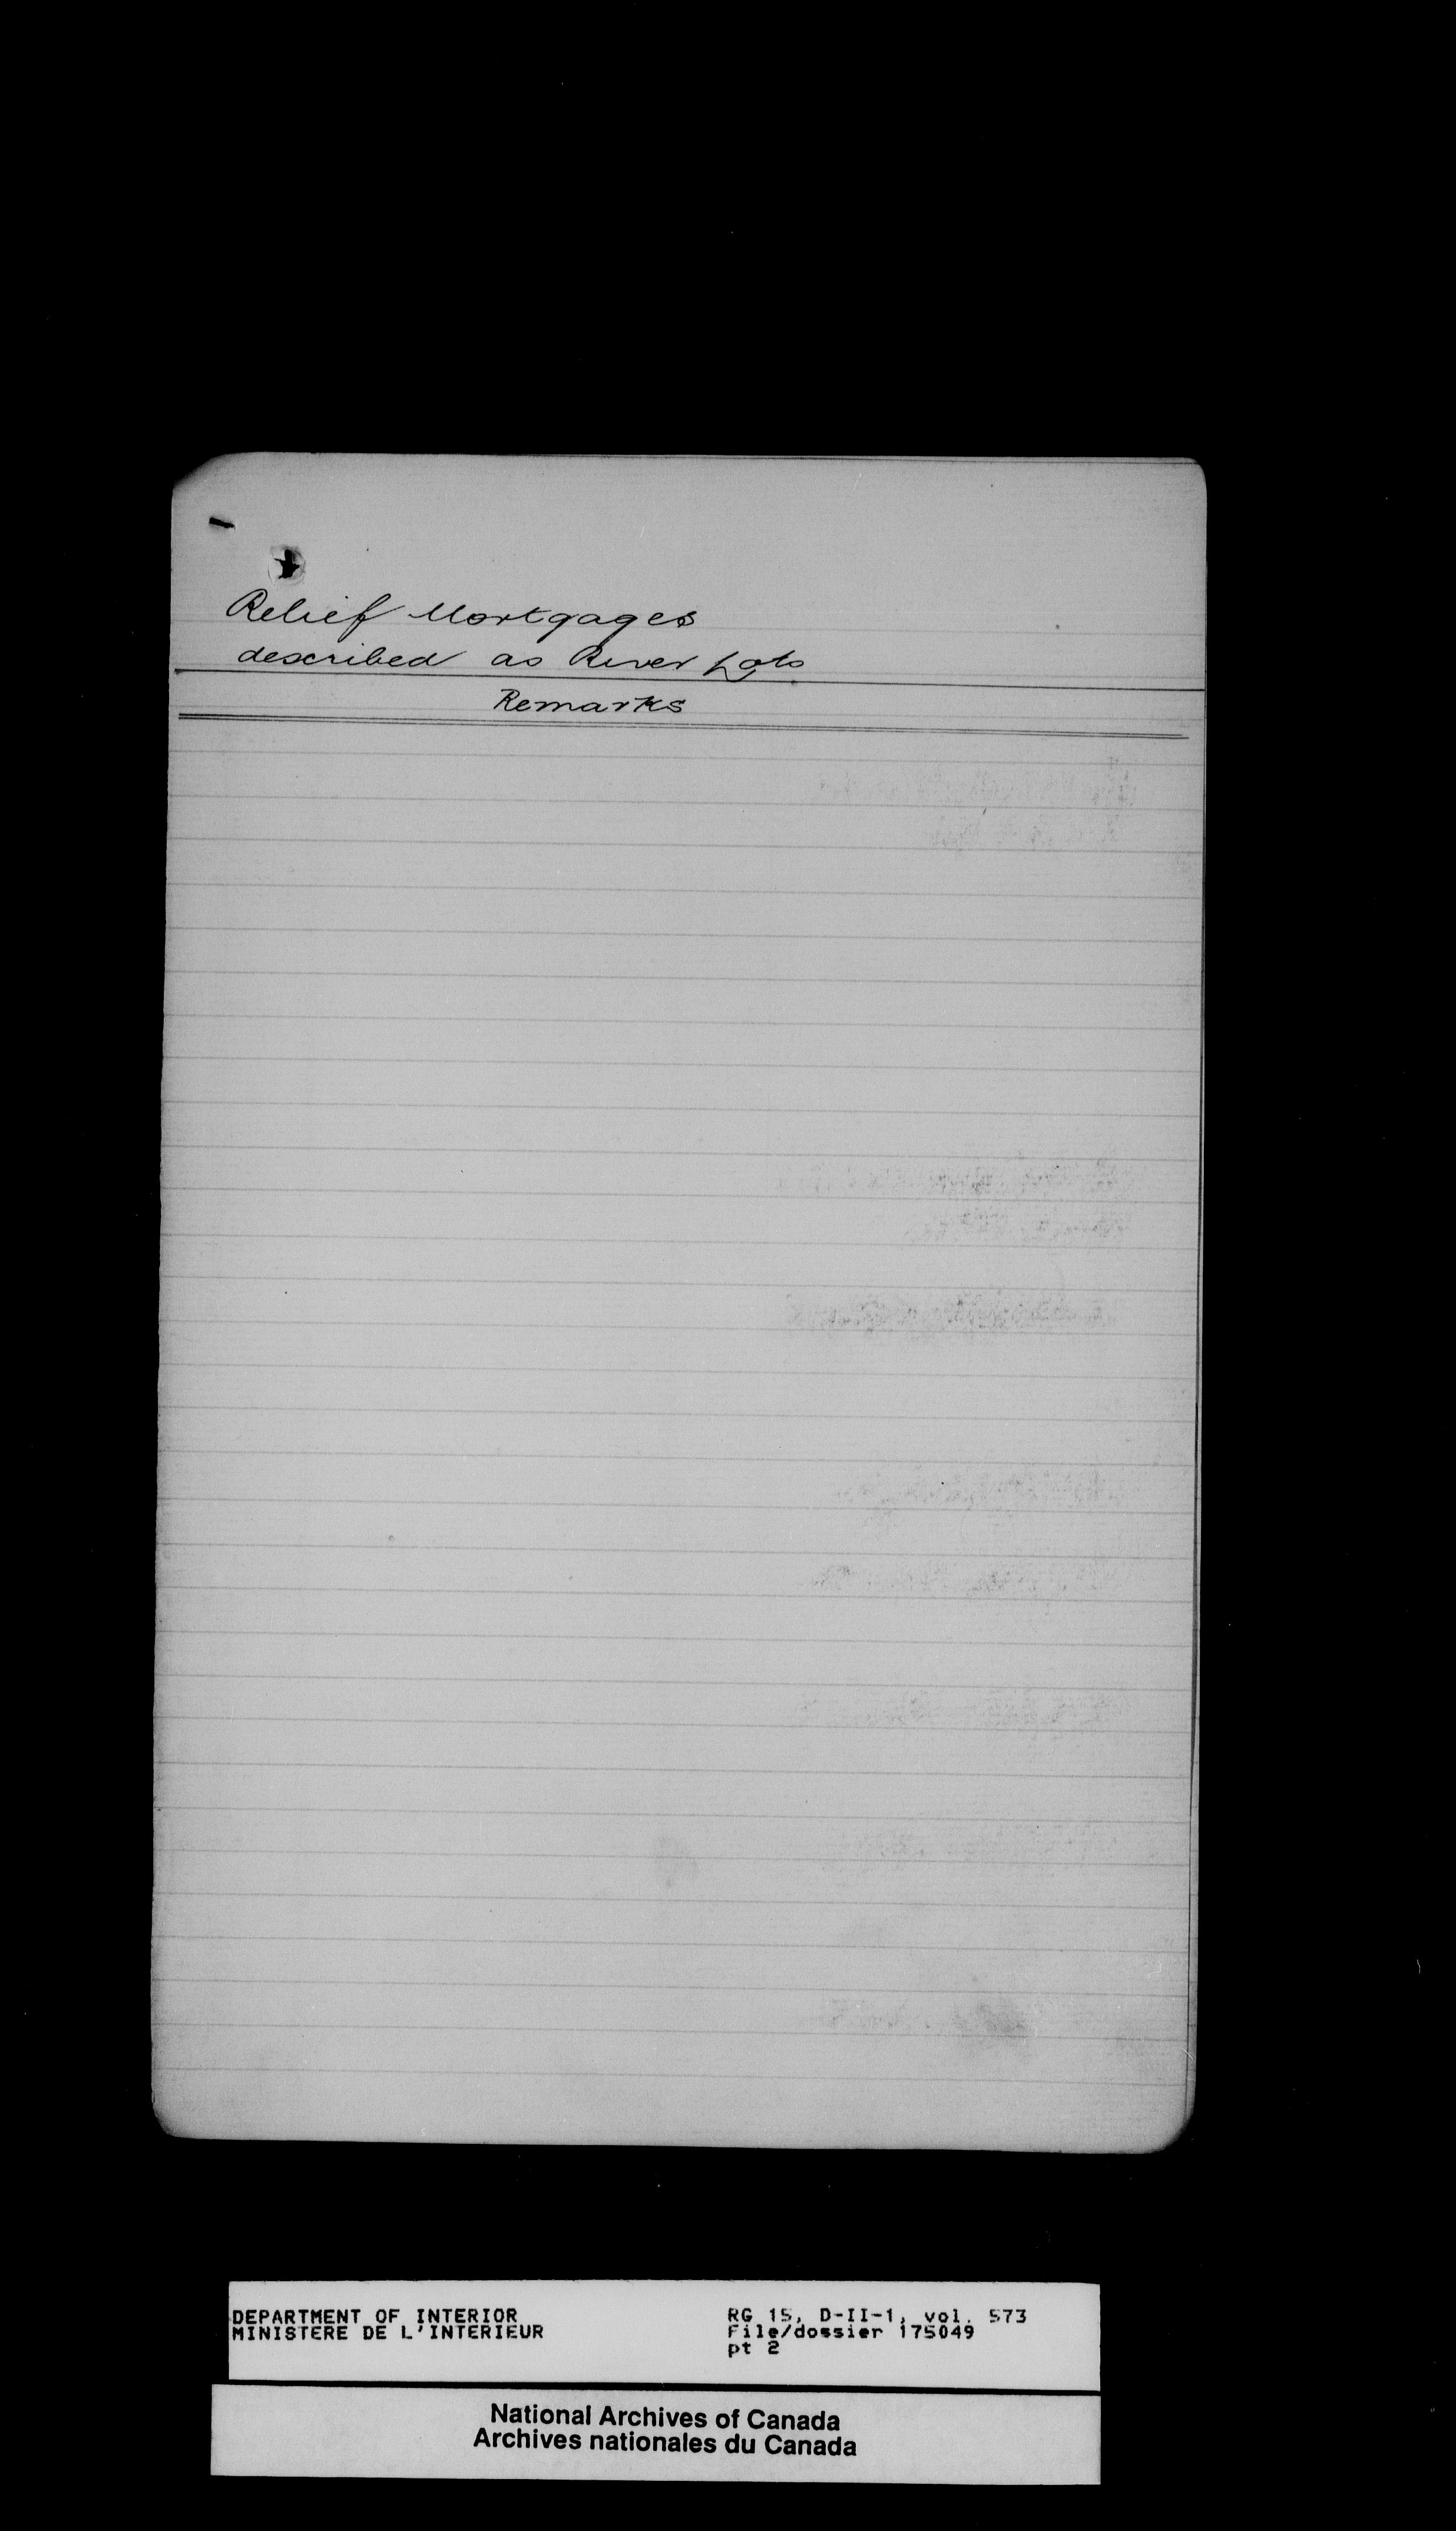 Relief Mortgages
described as River Lots
Remarks
DEPARTMENT OF INTERIOR
MINISTERE DE L'INTERIEUR
RG 15, D-II-1, vol. 573
File/dossier 175049
pt 2
National Archives of Canada
Archives nationales du Canada